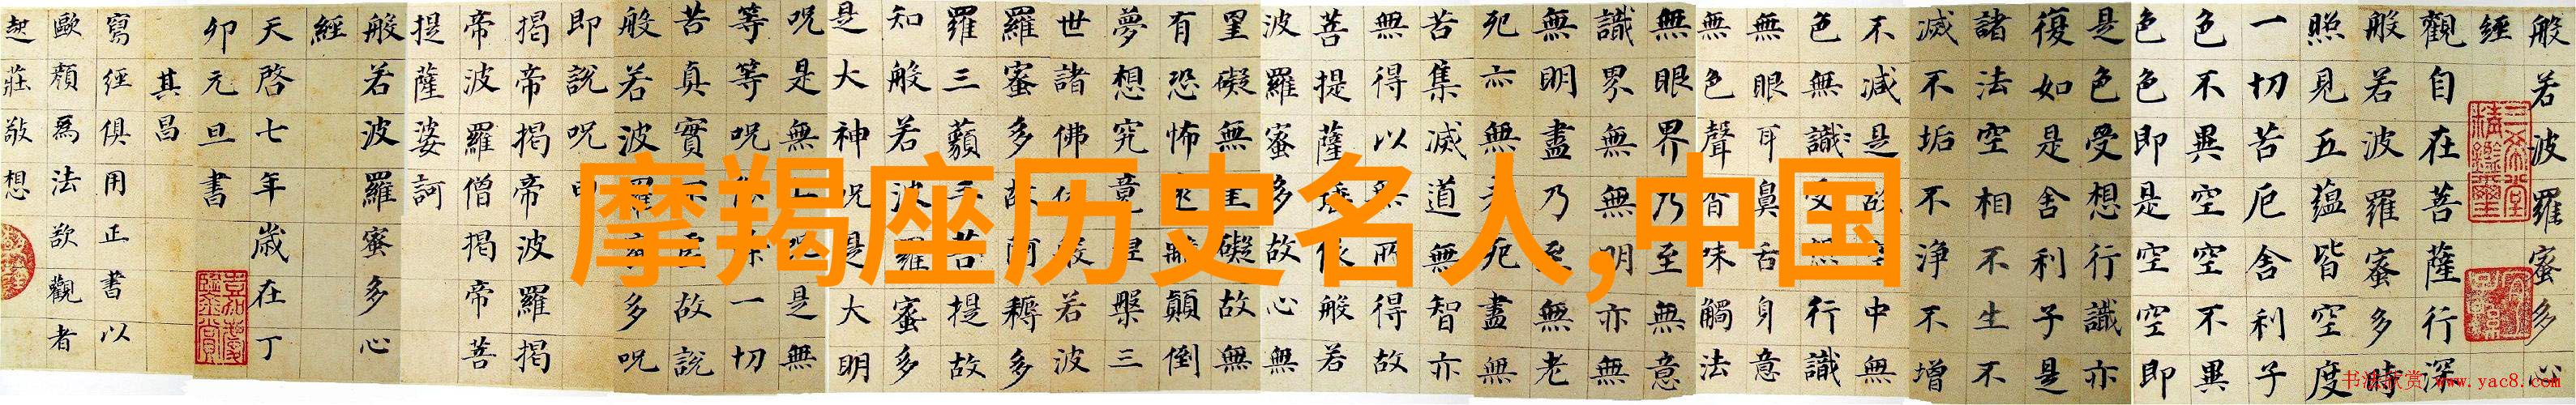 般若波羅蜜多心
經
觀自在菩薩行深
般若波羅蜜多時
照見五蘊皆空度
一切苦厄舍利子
色不異空空不異
色色即是空空即
是色受想行識亦
復如是舍利子是
諸法空相不生不
滅不垢不淨不增
不減是故空中無
色無識受行識
無眼耳鼻舌身意
無色聲香味觸法
無眼界乃至無意
識界無無明亦無
無明盡乃至無老
死亦無老死盡無
苦集滅道無智亦
無得以無所得故
菩提薩埵依般若
波羅蜜多故心無
罣礙無罣礙故無
有恐怖遠離顛倒
夢想究竟涅槃三
世諸佛依般若波
羅蜜多故阿耨多
羅三藐三菩提故
知般若波羅蜜多
是大神咒是大明
咒是無上咒是無
等等咒能除一切
苦真實不虛故說
般若波羅蜜多咒
即說咒曰
揭帝揭帝波羅揭
帝波羅僧揭帝菩
提薩婆訶
般若波羅蜜多心
經
天啓七年歲在丁
卯元旦書
其昌
寫經俱用正書以
歐顏爲法欲觀者
起莊敬想
摩羯座历史名人,中国
书法欣赏 www.yac8.com